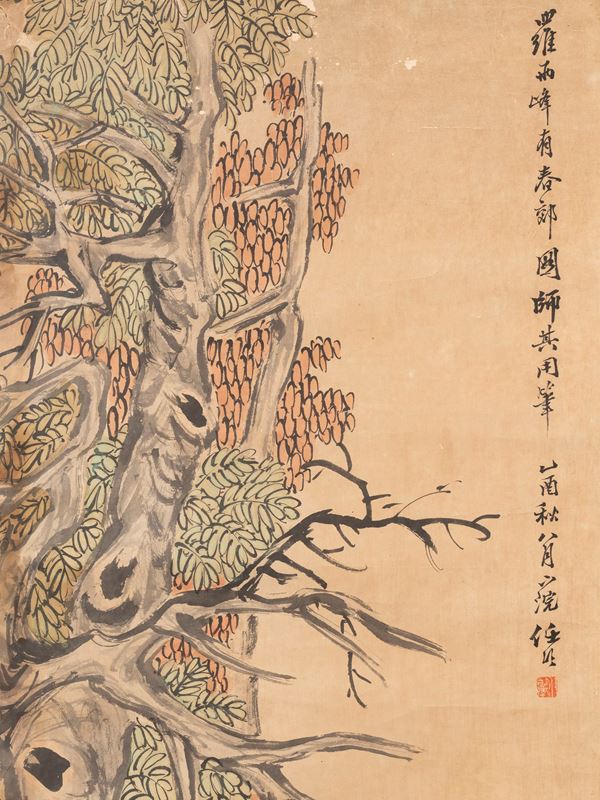 羅兩峰有春郊圖師其用筆
乙酉秋八月
任